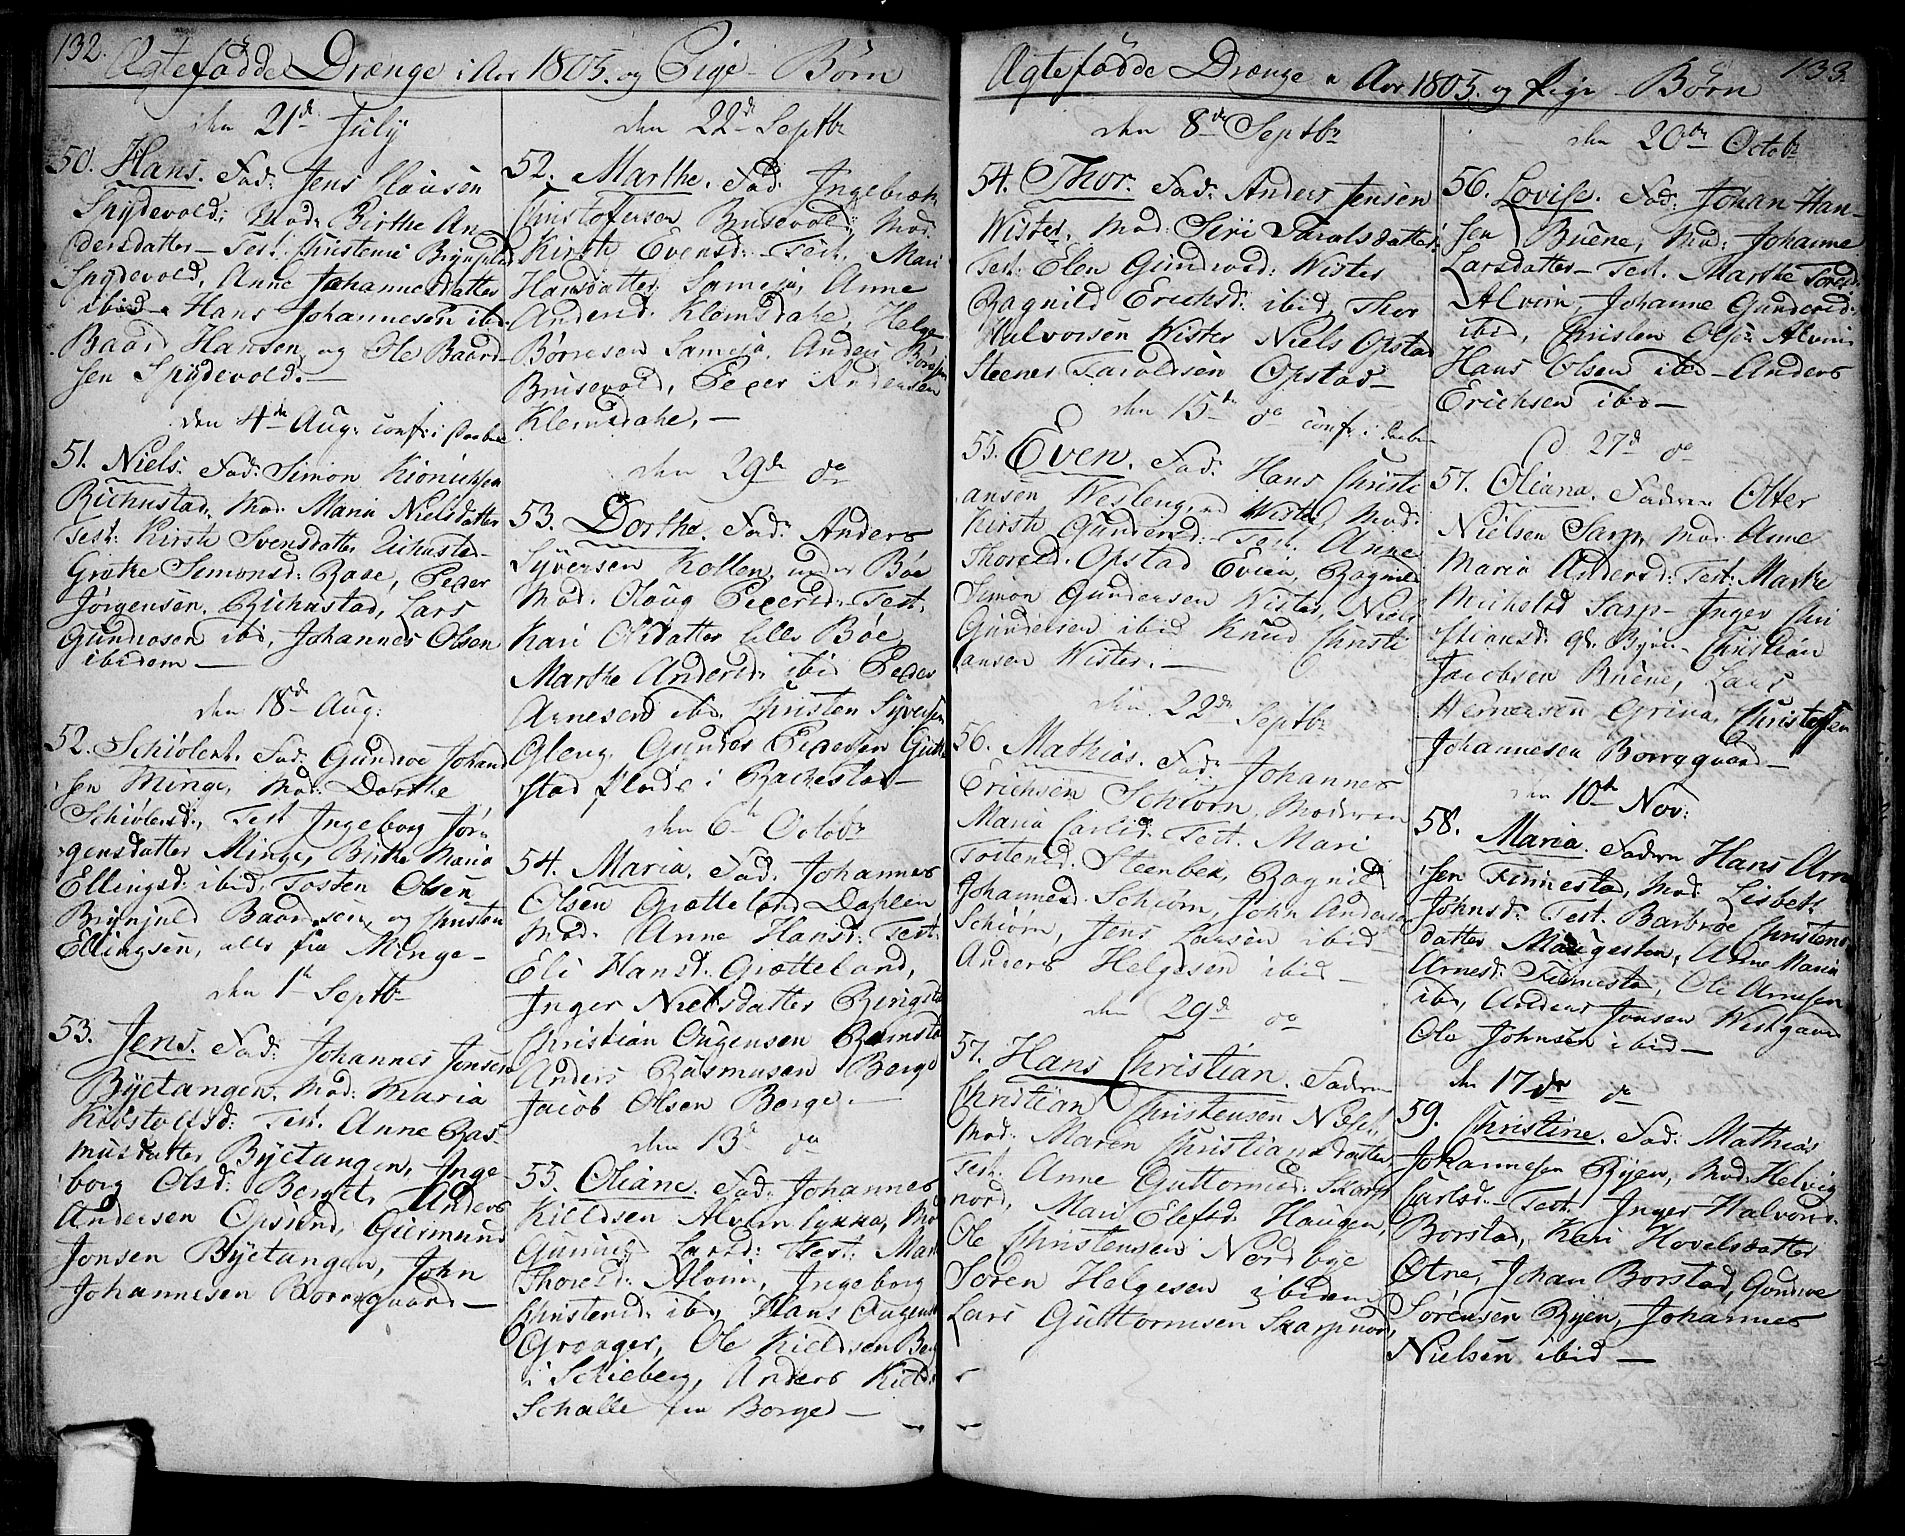 132.
Ægtefødde Drænge i Aar 1805. og Pige-Børn
den 21de July
50. Hans. Fad: Jens Clausen
Spydevold; Mod: Birthe An
dersdatter - Test. Christense Brynilds
Spydevold, Anne Johannesdatter
ibid - Hans Johannesen ibid
Baard Hansen og Ole Baard-
sen Spydevold. -
den 4de Aug: conf: i
51. Niels. Fad: Simon
Mod. Maria Nielsdatter
Test: Kirsti Svensdatter
Grethe Simonsd: Peder
Jørgensen, Lars
Gundersen ibid, Johannes Olsen
ibidem -
den 18de Aug:
52. Fad: Gundroe Johan
sen Minge, Mod: Dorthe
Test Ingeborg Jør-
gensdatter Minge, Birthe Maria
Ellingsd: ibid, Tosten Olsen
Brynjuld Baardsen, og Christen
Ellingsen, alle fra Minge -
den 1te Septbr
53. Jens. Fad: Johannes Jensen
Byetangen, Mod: Maria
Test. Anne Ras-
musdatter Byetangen, Inge
borg Olsd: Berget, Anders
Andersen Opsund, Gudmund
Jonsen Byetangen, John
Johannesen Borregaard -
den 22de Septbr
52. Marthe. Fad: Ingebreth
Christofersen Brusevold, Mod.
Kirsti Evensd: - Test. Mari
Hansdatter Sameja, Anne
Andersd. Klemsdahe, Helge
Børresen Sameja, Anders Børresen
Brusevold, Peder Andersen
Klemsdahe, -
den 29de do
53. Dorthe. Fad: Anders
Syversen Kollen under Bøe
Mod. Oloug Pedersd. Test.
Kari Olsdatter lille Bøe,
Marthe Andersd: ibid Peder
Arnesen ibid Christen Syversen
Gleng, Gunder Pedersen
stad Plads i Rackestad -
den 6te Octobr
54. Maria. Fad. Johannes
Olsen Grøtteland Dahlen
Mod. Anne Hansd: Test:
Eli Hansd: Grøtteland,
Inger Nielsdatter Ringstad
Christian Ramstad
Anders Rasmusen Borge
Jacob Olsen Borge. -
den 13de do
55. Oliane. Fad: Johannes
Kieldsen Alvim lykke, Mod
Larsd: Test: Marthe
Thoresd: Alvim, Ingeborg
Christensd. ibid Hans
Graager, Ole Kieldsen Berg
i Schieberg, Anders Kield
Schalle fra Borge -
133.
Ægtefødde Drænge i Aar 1805. og Pige-Børn
den 8de Septbr
54. Thor. Fad: Anders Jensen
Wister. Mod: Siri Taralsdatter
Test: Elen Gundersd: Wister
Ragnild Erichsd: ibid, Thor
Halvorsen Wister Niels Opstad
Steener Taroldsen Opstad -
den 15de do conf: i
55. Even. Fad: Hans Christi
ansen Westeng, Wister, Mod:
Kirsti Gundersd: Test. Anne
Thoresd: Opstad Ragnild
Simon Gundersen Wister, Niels
Gundersen ibid Knud Christi
ansen Wister. -
den 22de Septbr
56. Mathias. Fad: Johannes
Erichsen Schiørn, Moderen
Maria Carlsd: Test. Mari
Tostensd. Steenbek, Ragnild
Johannesd. Schiørn, John Andersen
Schiørn, Jens Larsen ibid
Anders Helgesen ibid -
den 29de do
57. Hans Christian. Faderen
Christian Christensen
Mod: Maren Christiansdatter
Test. Anne Guttormsd: Skarp
nord, Mari Elefsd: Haugen,
Ole Christensen Nordbye
Søren Helgesen ibidem
Lars Guttormsen Skarpnor,
den 20de Octobr
56. Lovise. Fad: Johan Han-
sen Buene, Mod: Johanne
Larsdatter - Test. Marthe Toresd:
Alvim, Johanne Gundersd:
ibid, Christen Olsen Alvim
Hans Olsen ibid - Anders
Erichsen ibid -
d 27de do
57. Oliana. Faderen Otter
Nielsen Sarp, Mod Anne
Maria Andersd: Test: Marthe
Michelsd Sarp - Inger Chri
stiansd. Christian
Jacobsen Buene, Lars
Wernersen Grina, Christofer
Johannesen Borregaard -
den 10de Nov:
58. Maria. Faderen Hans Arne
sen Finnestad, Mod. Lisbeth
Johnsd: Test. Barbroe Christens
datter Maugesten, Anne Maria
Arnesd: Finnestad, Ole Arnesen
ibid, Anders Jonsen Westgaard
Ole Johnsen ibid -
den 17de do
59. Christine. Fad: Mathias
Johannesen Ryen, Mod: Helvig
Carlsd - Test: Inger Halvorsd.
Borstad, Kari Hovelsdatter
Otne, Johan Borstad, Gundroe
Sørensen Ryen, Johannes
Nielsen ibid -